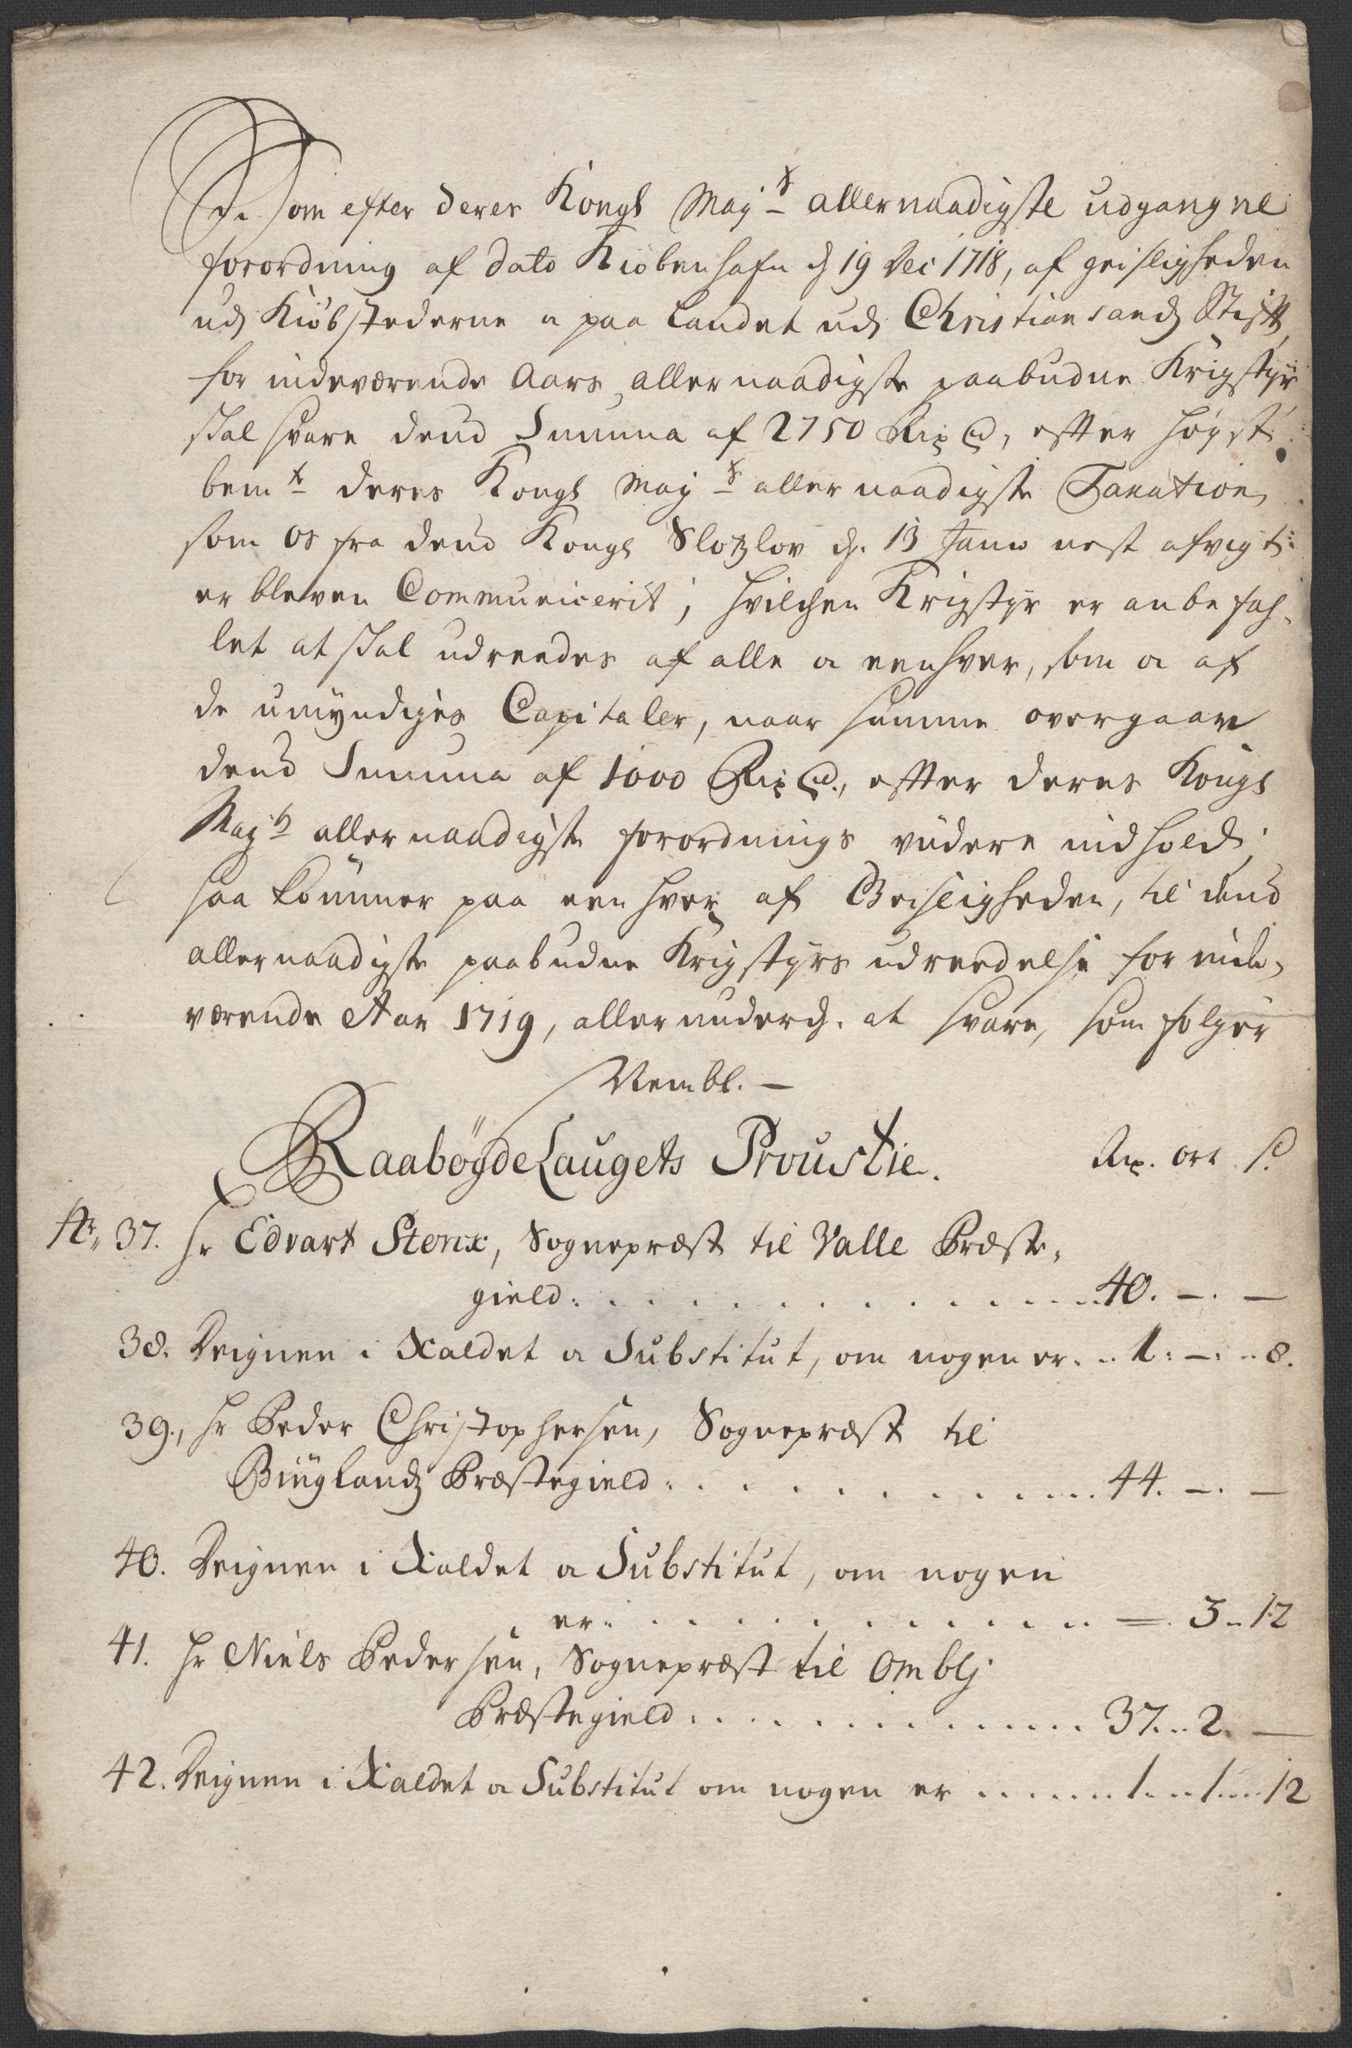 Som efter deres Kongl Maytz allernaadigste udgangne
forordning af dato Kiøbenhafn d 19 Dec 1718, af geistligheden
udj Kiøbstederne og paa Landet udj Christiansandz Stift,
for indeværende Aars allernaadigste paabudne Krigstyr
skal svare dend Summa af 2750 Rixd, efter høyst
bemte deres Kongl Maytz allernaadigste Taxation
som os fra dend Kongl Slotzlov d. 13 Janu nest afvigt
er bleven Communicerit; hvilchen Krigstyr er anbefah-
let at skal udreedes af alle og eenhver, som og af
de umyndiges Capitaler, naar samme overgaar
dend Summa af 1000 Rixd., efter deres Kongl
Maytz allernaadigste forordnings viidere indhold;
saa kommer paa eenhver af Geistligheden, til dend
allernaadigste paabudne Krigstyrs udreedelse for inde-
værende Aar 1719, allerunderd. at svare, som følger
Nembl. —
Raabøygde Laugets Proustie. Rix. ort s.
No 37. Hr Edvart Stenix, Sognepræst til Valle Præste-
gield: . . . 40. —. —
38. Deignen i Kaldet og Substitut, om nogen er. .. 1: —. .. 8.
39., Hr Peder Christophersen, Sognepræst til
Biuglandz Præstegield: . . . 44. —. —
40. Deignen i Kaldet og Substitut, om nogen
er: . . . —. 3 .. 12
41. Hr Niels Pedersen, Sognepræst til Omblj
Præstegield: . . . 37. .. 2. —
42. Deignen i Kaldet og Substitut om nogen er . . . 1 ... 1 ... 12